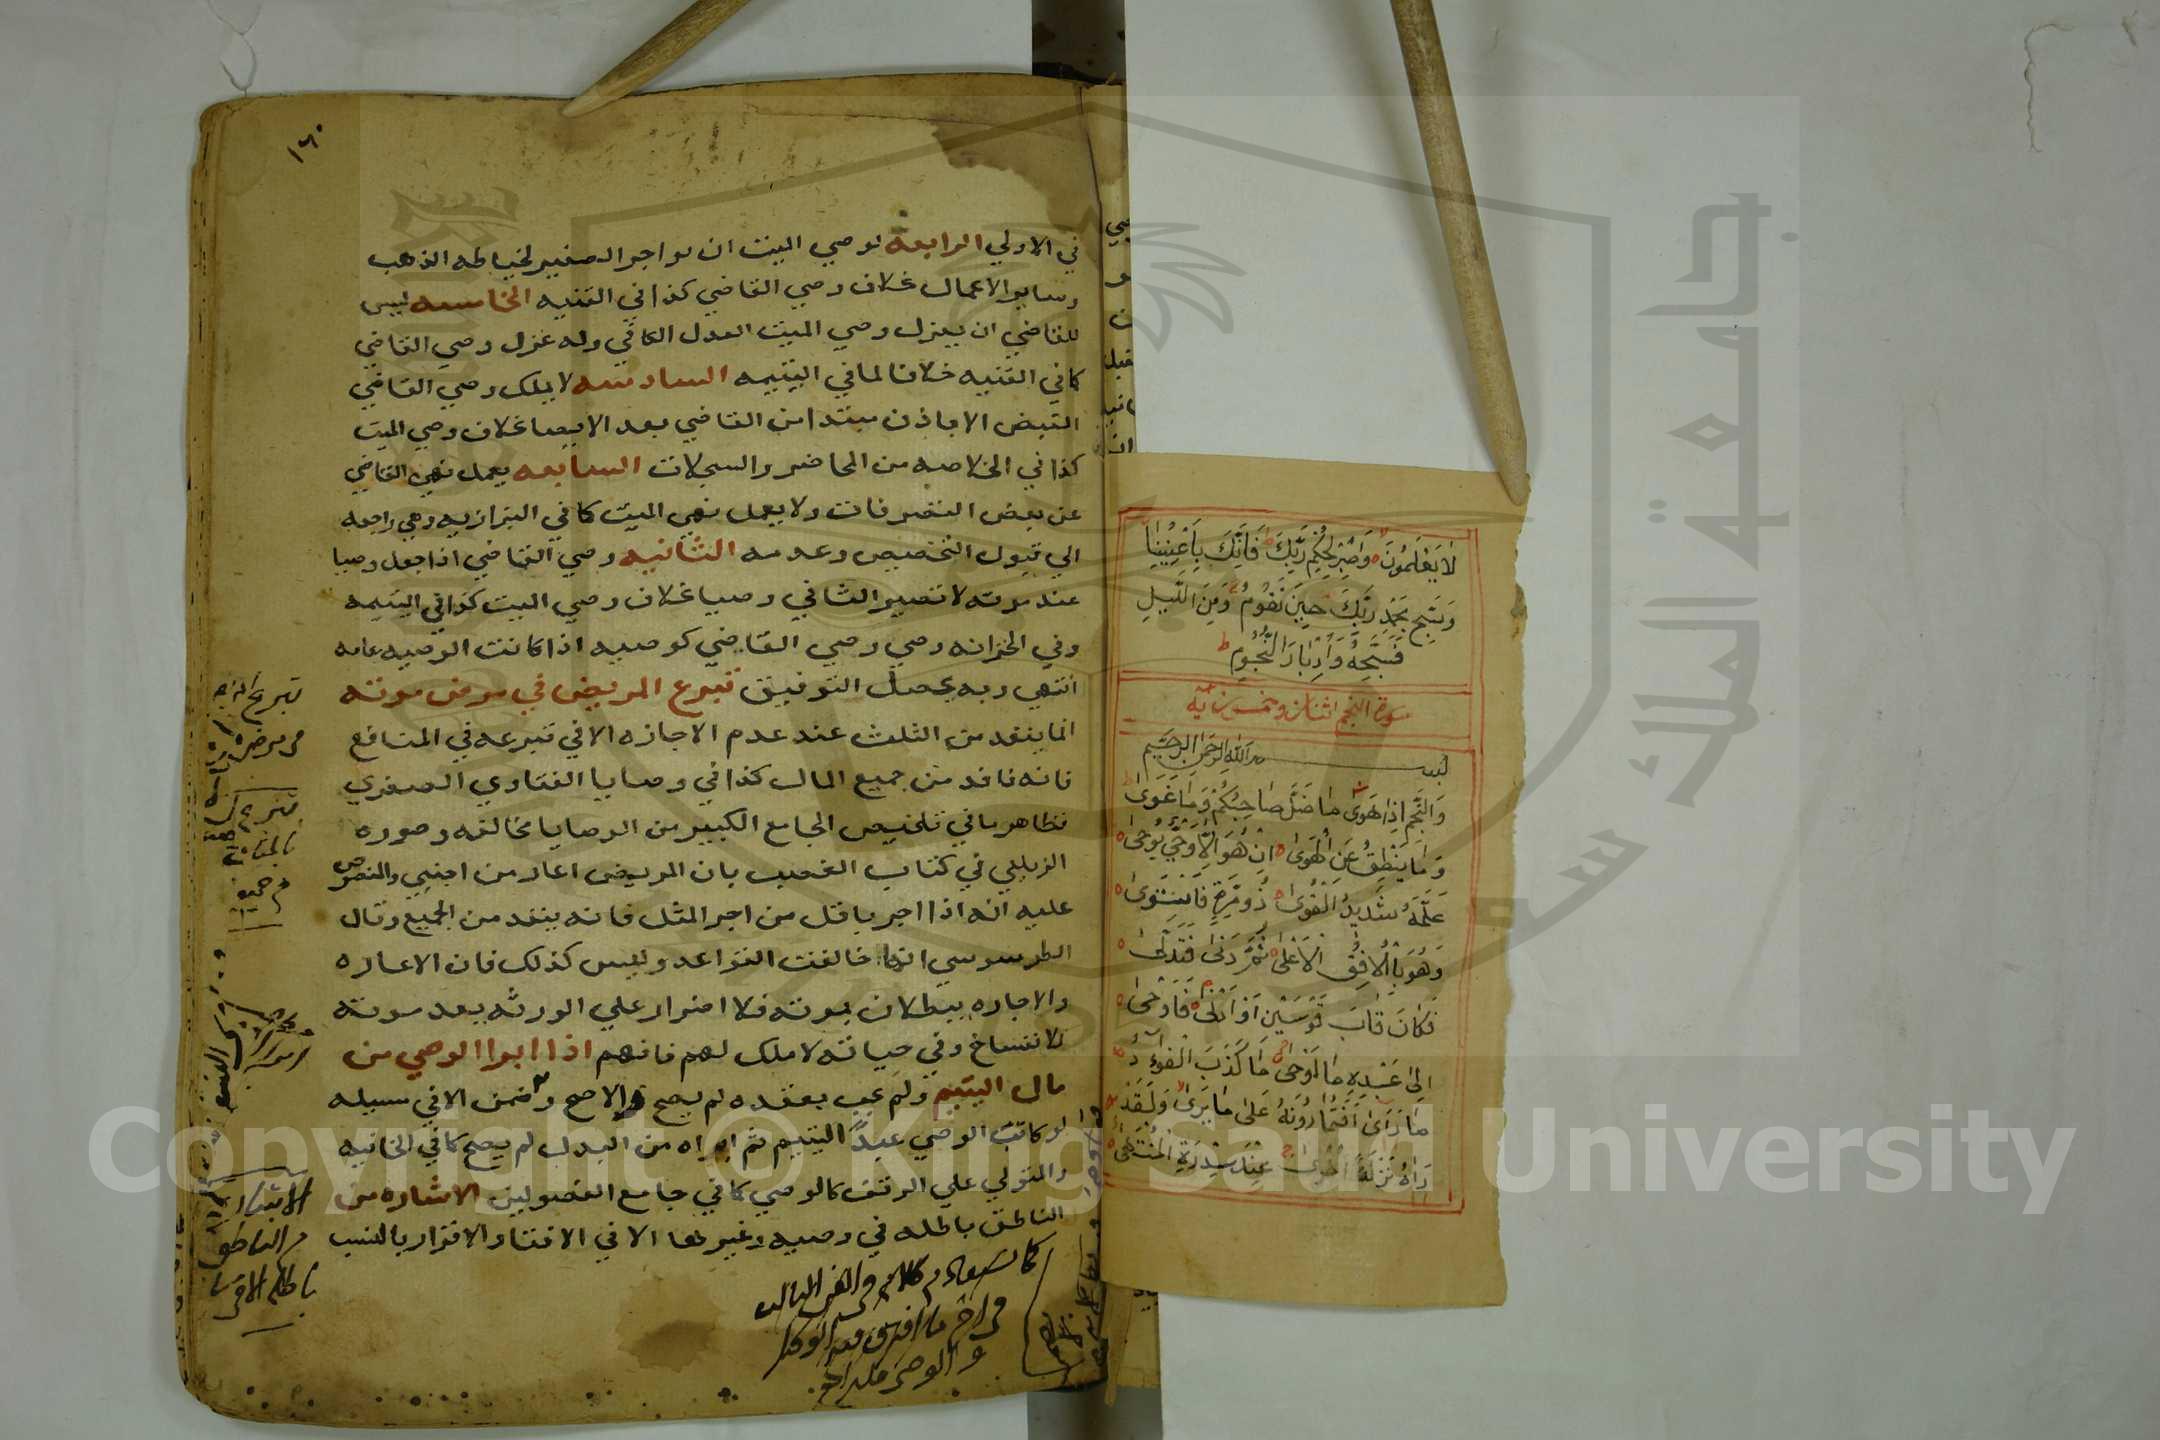 ١٦٠
في الاولي الرابعه لوصي الميت ان يواجر الصغير لخياطه الذهب
وساير الاعمال خلاف وصي القاضي كذا في القنيه الخامسه ليس
للقاضي ان يعزل وصي الميت العدل الكافي وله عزل وصي القاضي
كما في القنيه خلافا لما في اليتيمه السادسه لا يملك وصي القاضي
القبض الا باذن مبتدا من القاضي بعد الايصا خلاف وصي الميت
كذا في الخلاصه من المحاضر والسجلات السابعه يعمل نهي القاضي
عن بعض التصرفات ولا يعمل نهي الميت كما في البزازيه وهي راجعه
الي قبول التخصيص وعدمه الثانيه وصي القاضي اذا جعل وصيا
عند موته لا تصير الثاني وصيا خلاف وصي الميت كذا في اليتيمه
وفي الخزانه وصي وصي القاضي كوصيه اذا كانت الوصيه عامه
انتهي وبه يحصل التوفيق تبرع المريض في مرض موته
انما ينفد من الثلث عند عدم الاجازه الا في تبرعه في المنافع
فانه نافد من جميع المال كذا في وصايا الفتاوي الصغري
فظاهر ما في تلخيص الجامع الكبير من الوصايا مخالفه وصوره
الزيلعي في كتاب الغصب بان المريض اعار من اجنبي والمنصوص
عليه انه اذا اجر باقل من اجر المثل فانه ينفد من الجميع وقال
الطرسوسي انها خالفت القواعد وليس كذلك فان الاعاره
والاجاره يبطلان بموته فلا اضرار علي الورثه بعد موته
للانفساخ وفي حياته لا ملك لهم فافهم اذا ابرا الوصي من
مال اليتيم ولم يجب بعقده لم يصح والاصح وضمن الا في مسيله
لو كاتب الوصي عبدا اليتيم ثم ابراه من البدل لم يصح كما في الخانيه
والمتولي علي الوقف كالوصي كما في جامع الفصولين الاشاره من
الناطق باطله في وصيه وغيرها الا في الافتا والاقرار بالنسب
الاشارة
من الناطق
باطلة الا في
لَا يَعْلَمُونَ وَاصْبِرْ لِحُكْمِ رَبِّكَ فَإِنَّكَ بِأَعْيُنِنَا
وَسَبِّحْ بِحَمْدِ رَبِّكَ حِينَ تَقُومُ وَمِنَ اللَّيْلِ
فَسَبِّحْهُ وَأَدْبَارَ النُّجُومِ
سورة النجم اثنان وخمسون آية
بسم الله الرحمن الرحيم
وَالنَّجْمِ إِذَا هَوَى مَا ضَلَّ صَاحِبُكُمْ وَمَا غَوَى
وَمَا يَنْطِقُ عَنِ الْهَوَى اِنْ هُوَ اِلَّا وَحْيٌ يُوحَى
عَلَّمَهُ شَدِيدُ الْقُوَى ذُو مِرَّةٍ فَاسْتَوَى
وَهُوَ بِالْأُفُقِ الْأَعْلَى ثُمَّ دَنَى فَتَدَلَّى
فَكَانَ قَابَ قَوْسَيْنِ اَوْ اَدْنَى فَاَوْحَى
اِلَى عَبْدِهِ مَا اَوْحَى مَا كَذَبَ الْفُؤَادُ
مَا رَاَى اَفَتُمَارُونَهُ عَلَى مَا يَرَى وَلَقَدْ
رَاهُ نَزْلَةً اُخْرَى عِنْدَ سِدْرَةِ الْمُنْتَهَى
جامعة الملك
Copyright © King Saud University